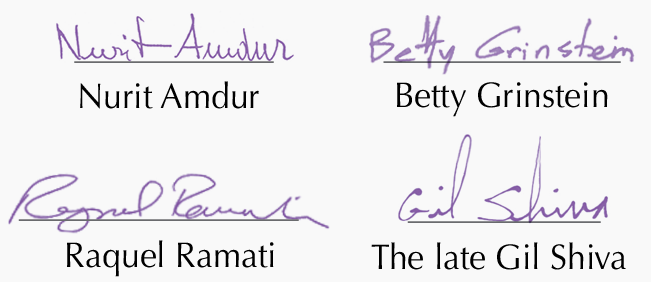 Nurit Amdur
Betty Grinstein
Nurit Amdur
Betty Grinstein
Raquel Ramati
Gil Shiva
Raquel Ramati
The late Gil Shiva